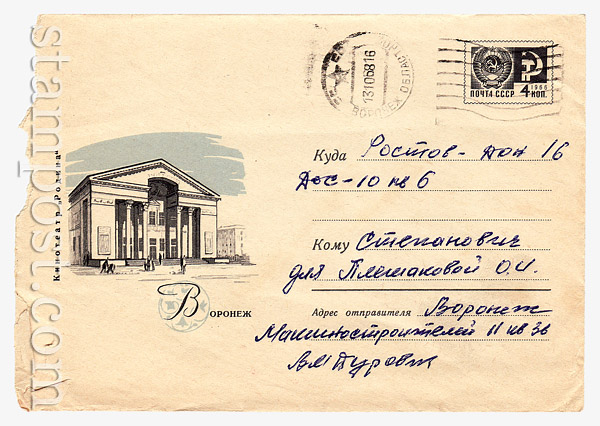 stamp-post.com
Кинотеатр „Родина“
Воронеж
13106816
ВОРОНЕЖ ОБЛАСТ
ПОЧТА СССР 4 КОП.
1966
Куда Ростов-дон 16
Дос-10 кв 6
Кому Степанович
для Плешаковой О.И.
Адрес отправителя Воронеж
Машиностроителей 11 кв 36
ВМ